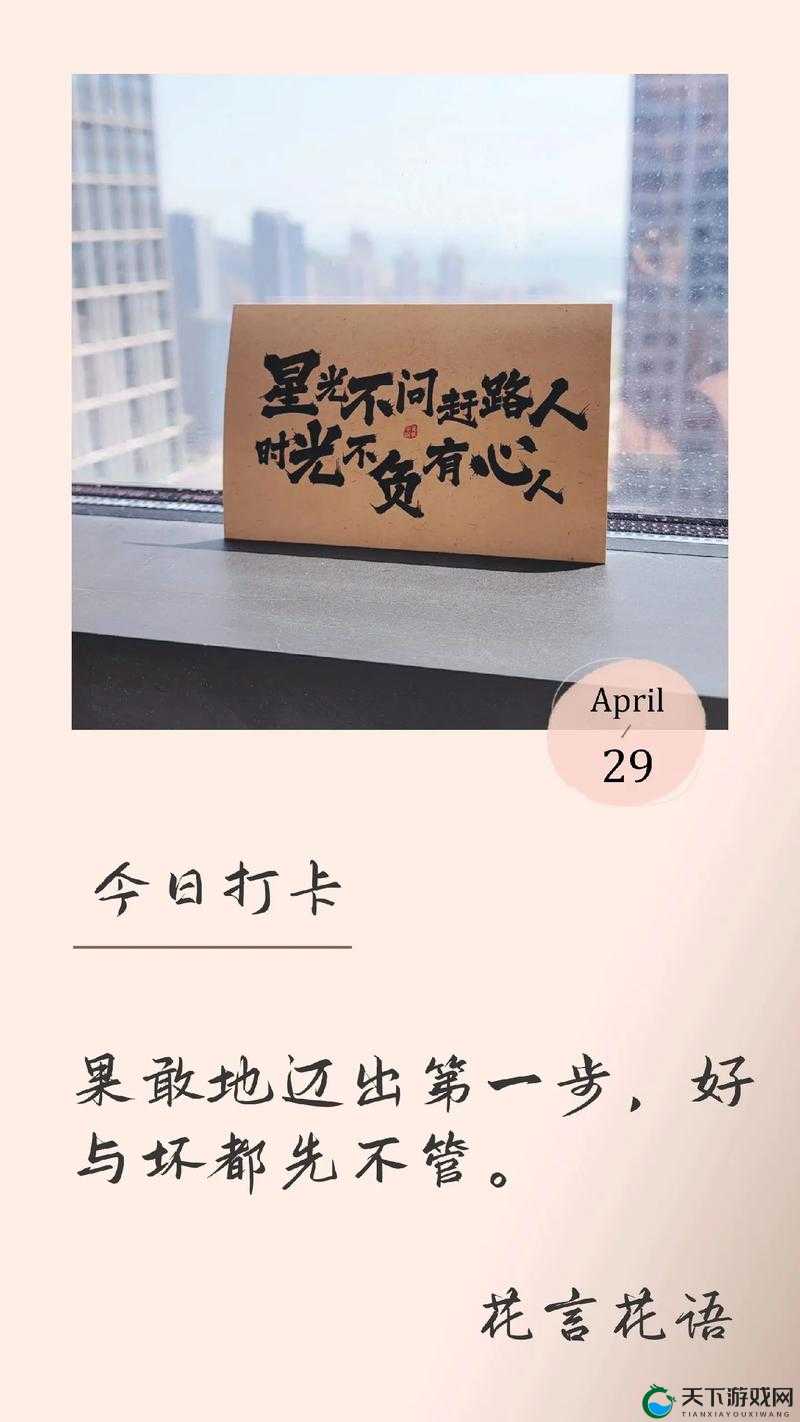 星光不问赶路人
时光不负有心人
April
/
29
今日打卡
果敢地迈出第一步，好
与坏都先不管。
花言花语
天下游戏网
TIANXIAYOUXIWANG